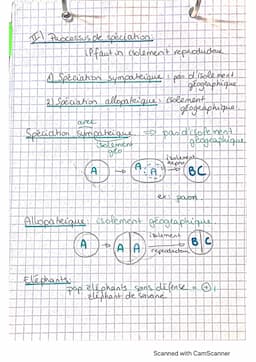 II) Processus de spéciation
Il faut un isolement reproducteur
1) Spéciation sympatrique : pas d'isolement
géographique
2) Spéciation allopatrique : isolement
géographique
avec
Spéciation sympatrique => pas d'isolement
géographique
isolement
géo
A → A A → BC
isolement
repro
ex:
Allopatrique : isolement géographique
A → A A → B C
isolement
reproducteur
Eléphants
pop éléphants sans défense = ⊕,
éléphant de savane
Scanned with CamScanner